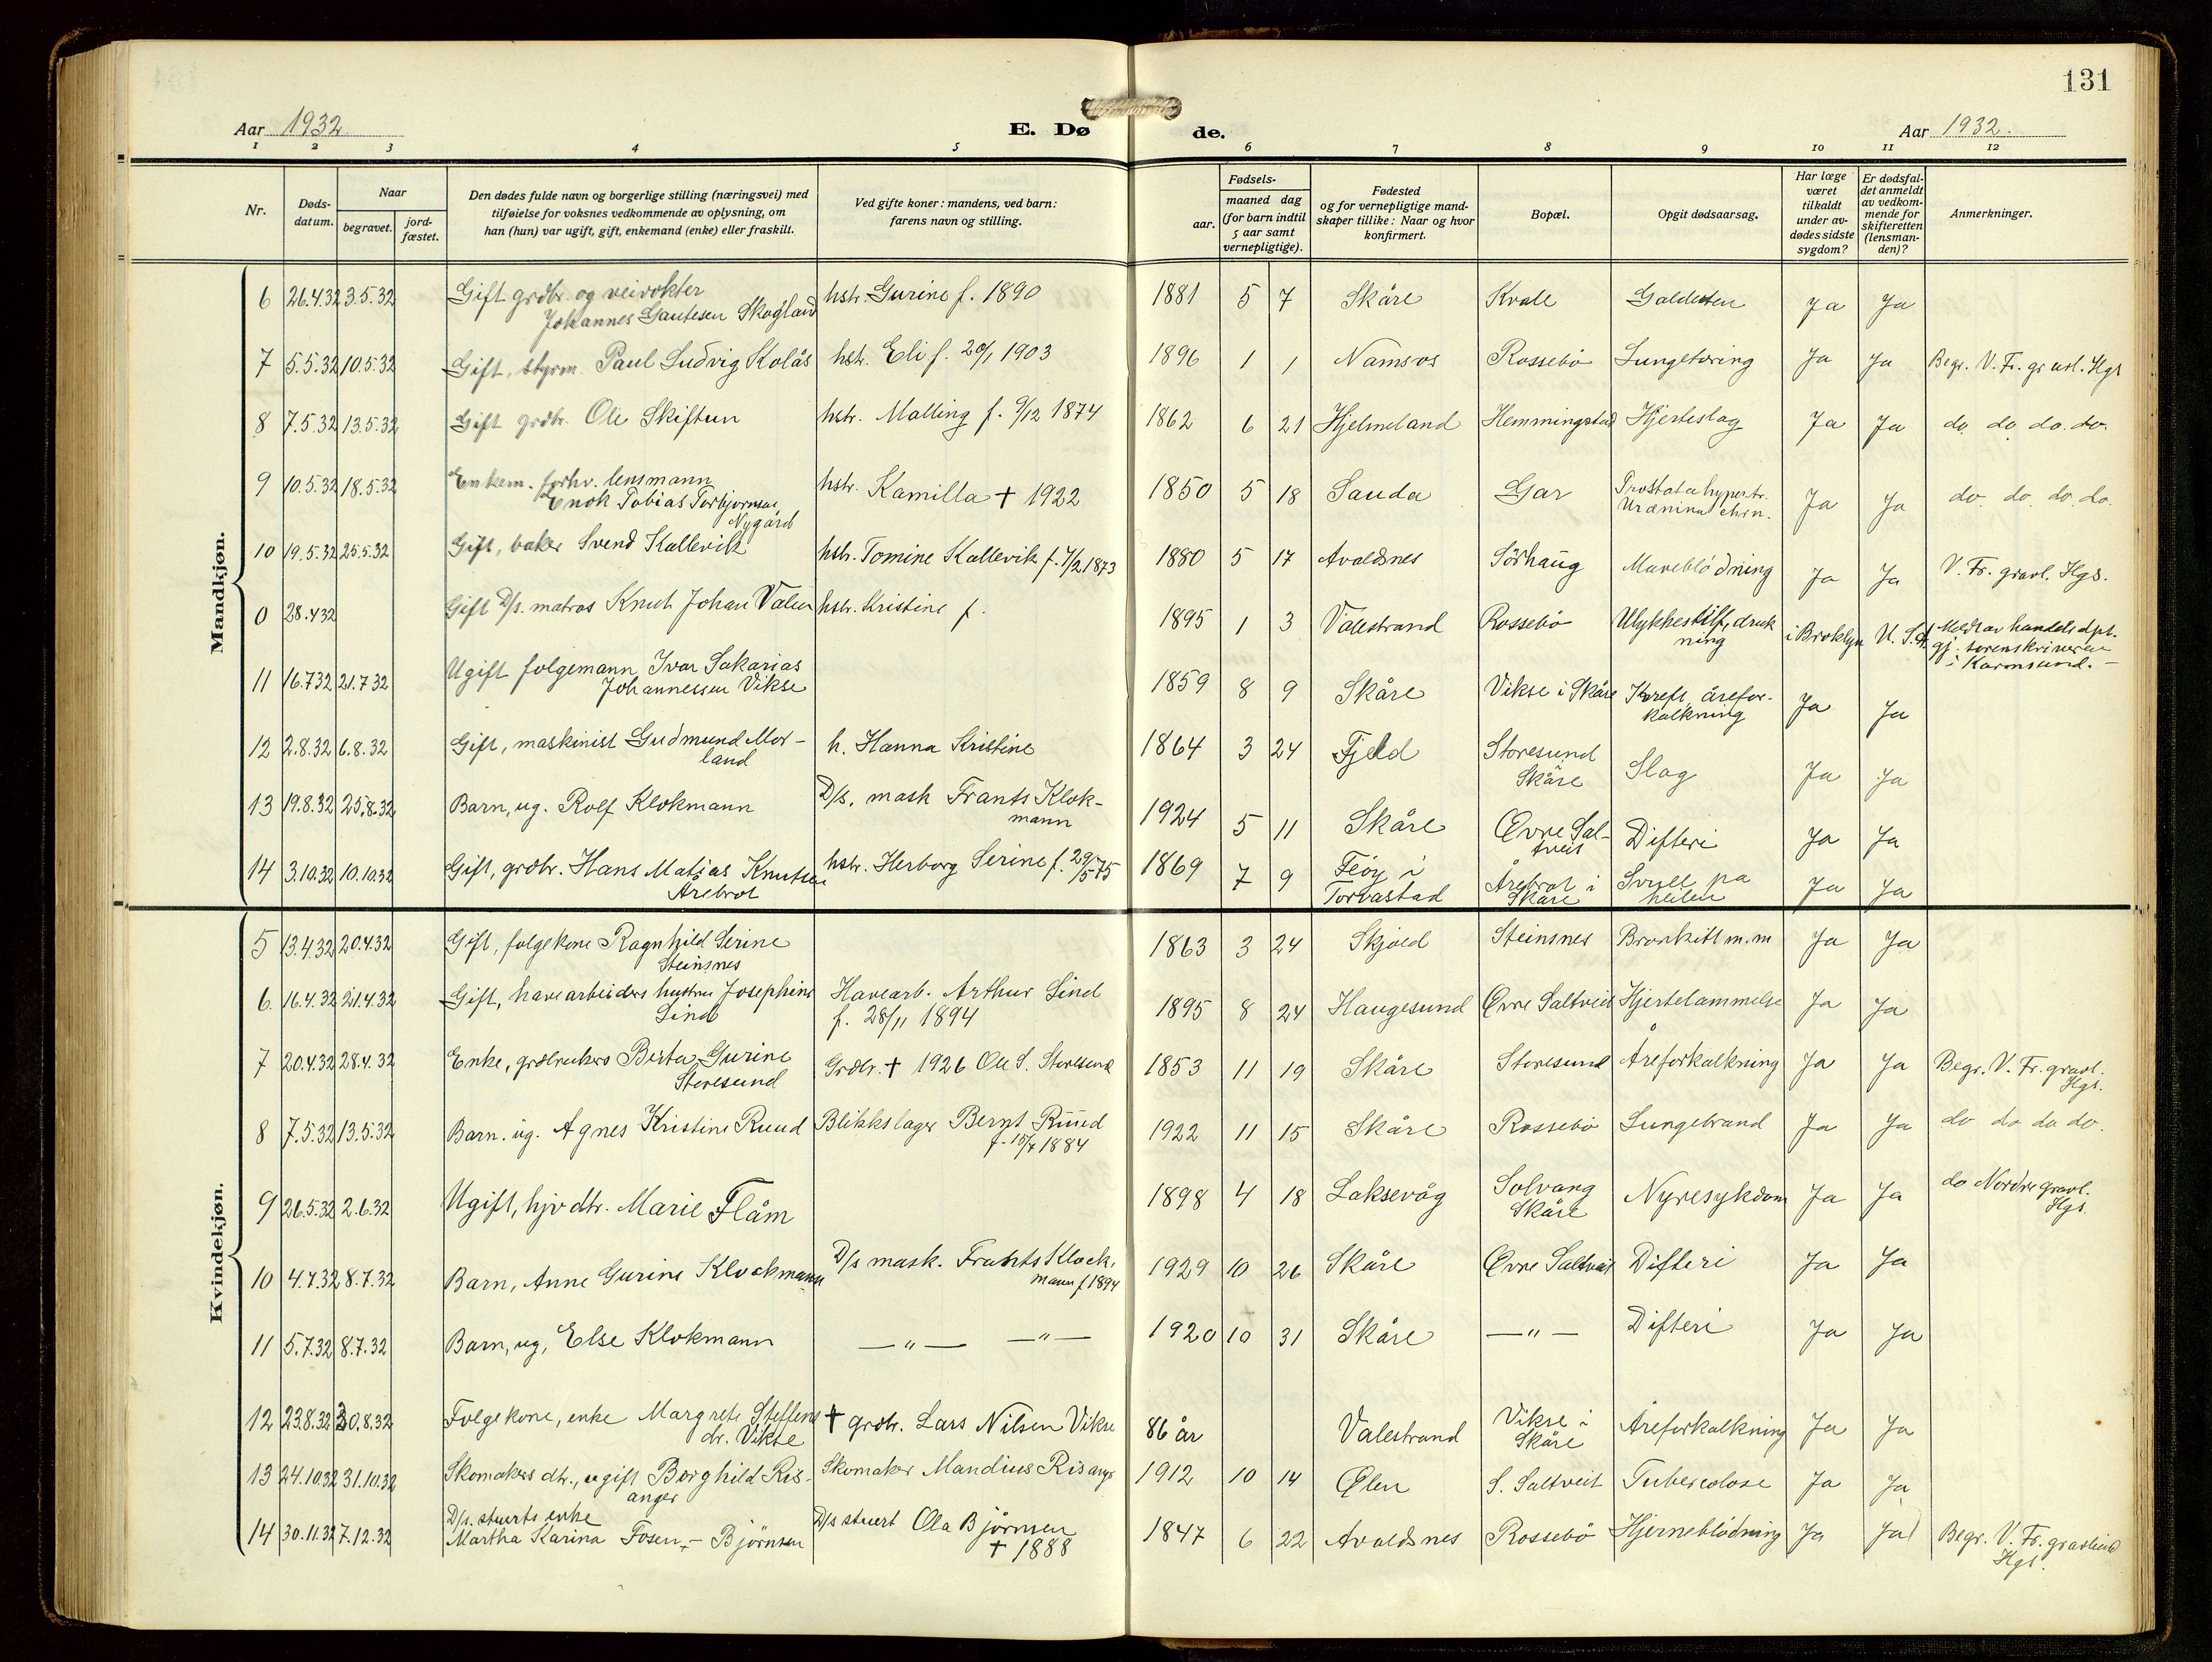 131
Aar 1932
E. Dø
de.
Aar 1932.
1 2 3 4 5 6 7 8 9 10 11 12
Nr.
Døds-
datum.
Naar
begravet.
jord-
fæstet.
Den dødes fulde navn og borgerlige stilling (næringsvei) med
tilføielse for voksnes vedkommende av oplysning, om
han (hun) var ugift, gift, enkemand (enke) eller fraskilt.
Ved gifte koner: mandens, ved barn:
farens navn og stilling.
Fødsels-
aar.
maaned dag
(for barn indtil
5 aar samt
vernepligtige).
Fødested
og for vernepligtige mand-
skaper tillike: Naar og hvor
konfirmert.
Bopæl.
Opgit dødsaarsag.
Har læge
været
tilkaldt
under av-
dødes sidste
sygdom?
Er dødsfal-
det anmeldt
av vedkom-
mende for
skifteretten
(lensman-
den)?
Anmerkninger.
Mandkjøn.
6 26.4.32 3.5.32 Gift grdbr. og veivokter
Johannes Gautesen Skogland hstr. Gurine f. 1890 1881 5 7 Skåre Kvale Galdesten Ja Ja
7 5.5.32 10.5.32 Gift, styrm. Paul Ludvig Kolås hstr. Eli f. 20/1 1903 1896 1 1 Namsos Rossebö Lungetæring Ja Ja Begr. V. Fr. gravl. Hgs
8 7.5.32 13.5.32 Gift grdbr. Ole Skiftun hstr. Malling f. 9/12 1874 1862 6 21 Hjelmeland Hemmingstad Hjerteslag Ja Ja do. do do. do.
9 10.5.32 18.5.32 Enkem. forhv. lensmann
Enok Tobias Torbjørnsen
Nygård hstr. Kamilla † 1922 1850 5 18 Sauda Gar Prostatahypertr.
Ja Ja do. do. do. do.
10 19.5.32 25.5.32 Gift, baker Svend Kallevik hstr. Tomine Kallevik f. 7/2 1873 1880 5 17 Avaldsnes Sörhaug Maveblödning Ja Ja V. Fr. gravl. Hgs.
0 28.4.32 Gift D/s. matros Knut Johan Valen hstr. Kristine f. 1895 1 3 Valestrand Rossebö Ulykkestilf, druk
ning i Broklyn U. S. A. Medt av handelsdpt.
gj. sorenskriveren
i Karmsund. –
11 16.7.32 21.7.32 Ugift folgemann Ivar Sakarias
Johannessen Vikse 1859 8 9 Skåre Vikse i Skåre Kreft, årefor-
kalkning Ja Ja
12 2.8.32 6.8.32 Gift, maskinist Gudmund Mor-
land h. Hanna Kristine 1864 3 24 Fjeld Storesund
Skåre Slag Ja Ja
13 19.8.32 25.8.32 Barn, ug. Rolf Klokmann D/s. mask Frants Klok-
mann 1924 5 11 Skåre Övre Sal-
tveit Difteri Ja Ja
14 3.10.32 10.10.32 Gift, grdbr. Hans Matias Knutsen
Årebrot hstr. Herborg Serine f. 29/5 75 1869 7 9 Feöy i
Torvastad Årebrot i
Skåre Svull på
Ja Ja
Kvindekjøn.
5 13.4.32 20.4.32 Gift, folgekone Ragnhild Serine
Steinsnes 1863 3 24 Skjold Steinsnes Bronkitt m.m Ja Ja
6. 16.4.32 21.4.32 Gift, havearbeiders hustru Josephine
Lind Havearb. Arthur Lind
f. 28/11 1894 1895 8 24 Haugesund Övre Saltveit Hjertelammelse Ja Ja
7 20.4.32 28.4.32 Enke, grdbrukers Berta Gurine
Storesund Grdbr. † 1926 Ole S. Storesund 1853 11 19 Skåre Storesund Åreforkalkning Ja Ja Begr. V. Fr. gravl.
Hgs.
8 7.5.32 13.5.32 Barn. ug. Agnes Kristine Ruud Blikkslager Bernt Ruud
f. 15/7 1884 1922 11 15 Skåre Rossebö Lungebrand Ja Ja do do do do.
9 26.5.32 2.6.32 Ugift, hjv dtr. Marie Flåm 1898 4 18 Laksevåg Solvang
Skåre Nyresykdom Ja Ja do Nordre gravl.
Hgs.
10 4.7.32 8.7.32 Barn, Anne Gurine Klockmann D/s mask. Frants Klock.
mann f. 1894 1929 10 26 Skåre Övre Saltveit Difteri Ja Ja
11 5.7.32 8.7.32 Barn, ug, Else Klokmann — " — — " — 1920 10 31 Skåre — " — Difteri Ja Ja
12 23.8.32 30.8.32 Folgekone, enke Margrete Steffens
dr. Vikse † grdbr. Lars Nilsen Vikse 86 år Valestrand Vikse i
Skåre Åreforkalkning Ja Ja
13 24.10.32 31.10.32 Skomakers dtr., ugift Borghild Ris-
anger Skomaker Mandius Risanger 1912 10 14 Ölen S. Saltveit Tuberculose Ja Ja
14 30.11.32 7.12.32 D/s. stuerts enke
Martha Karina Fosen, – Björnsen D/s stuert Ola Björnsen
† 1888 1847 6 22 Avaldsnes Rossebö Hjerneblödning Ja Ja Begr. V. Fr. gravlund
Hgs.